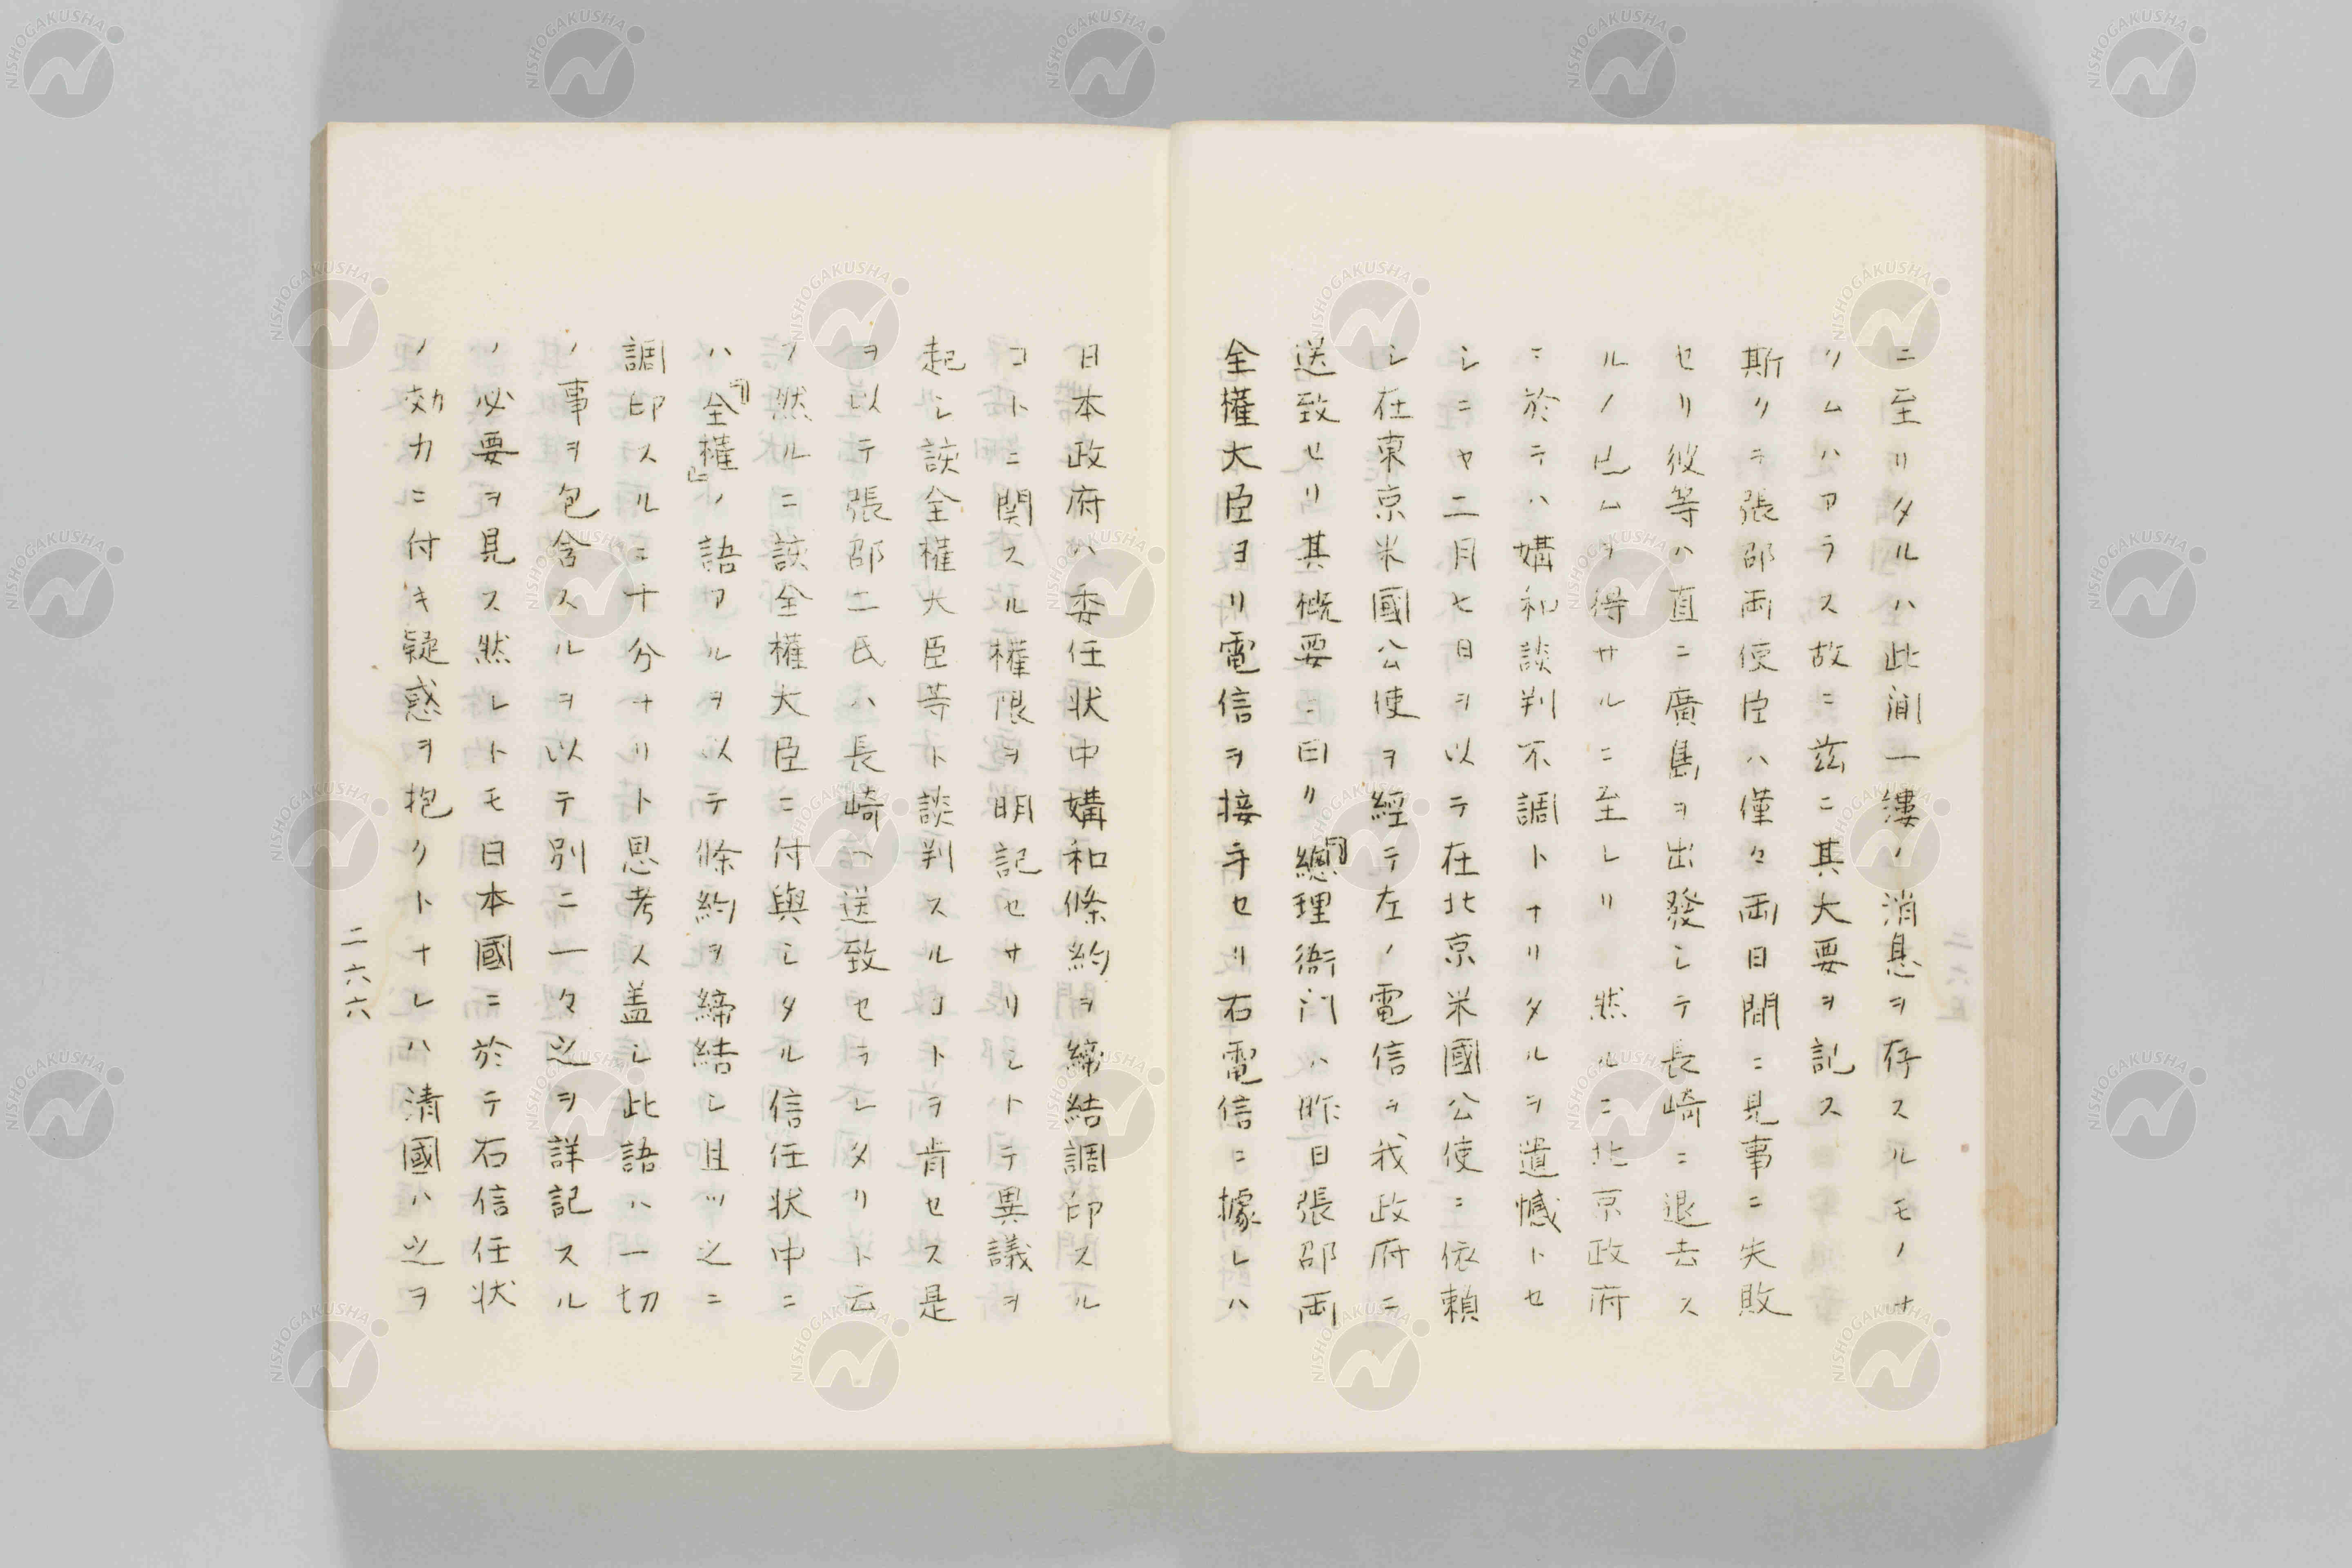 ニ至リタルハ此間一縷ノ消息ヲ存スルモノナ
リムハアラス故ニ茲ニ其大要ヲ記ス
斯クテ張邵両使臣ハ僅々両日間ニ見事ニ失敗
セリ彼等ハ直ニ廣島ヲ出發シテ長崎ニ退去ス
ルノ已ムヲ得サルニ至レリ然ルニ北京政府
ニ於テハ媾和談判不調トナリタルヲ遺憾トセ
シニヤ二月七日ヲ以テ在北京米國公使ニ依賴
シ在東京米國公使ヲ經テ左ノ電信ヲ我政府ニ
送致セリ其慨要ニ曰リ『總理衙門ハ昨日張邵両
全權大臣ヨリ電信ヲ接手セリ右電信ニ據レハ
日本政府ハ委任状中媾和條約ヲ締結調印スル
コトニ関スル權限ヲ明記セサリシトテ異議ヲ
起シ該全權大臣等ト談判スルコトヲ肯セス是
ヲ以テ張邵二氏ハ長崎ヘ送致セラレタリト云
フ然ルニ該全權大臣ニ付與シタル信任状中ニ
ハ『全權』ノ語アルヲ以テ條約ヲ締結シ且ツ之ニ
調印スルニ十分ナリト思考ス盖シ此語ハ一切
ノ事ヲ包含スルヲ以テ別ニ一々之ヲ詳記スル
ノ必要ヲ見ス然レトモ日本國ニ於テ右信任状
ノ効力ニ付キ疑惑ヲ抱クトナレハ清國ハ之ヲ
二六六
NISHOGAKUSHA